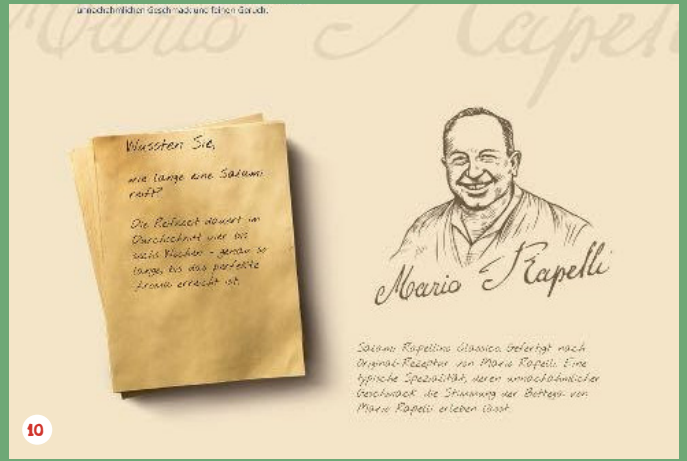 unnachahmlichen Geschmack und feinen Geruch.
Mario Rapelli
Wussten Sie,
wie lange eine Salami
reift?
Die Reifezeit dauert im
Durchschnitt vier bis
sechs Wochen – genau so
lange, bis das perfekte
Aroma erreicht ist.
Mario Rapelli
Salame Rapellino Classico. Gefertigt nach
Original-Rezeptur von Mario Rapelli. Eine
typische Spezialität, deren unnachahmlicher
Geschmack die Stimmung der Bottega von
Mario Rapelli erleben lässt.
10